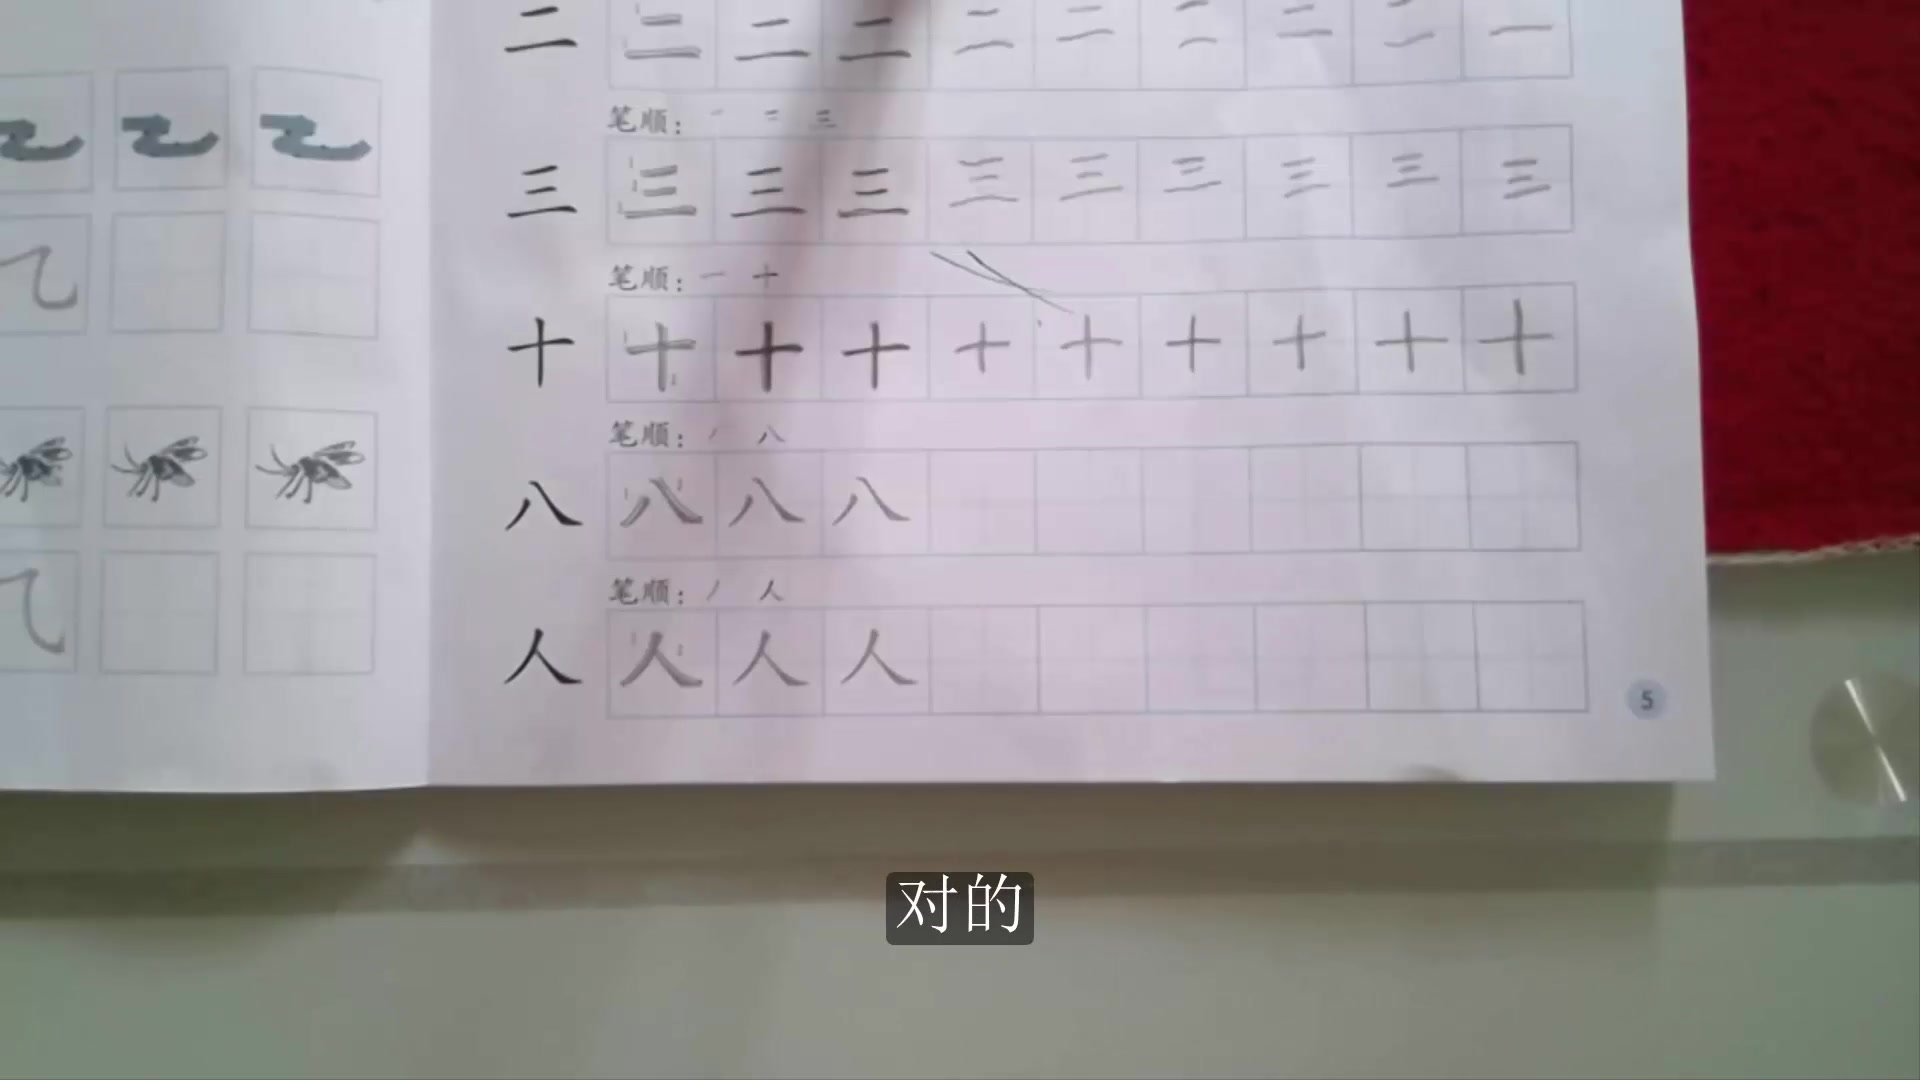 二 二 二 二 二 二 二 二 二 一
笔顺: 一 二 三
三 三 三 三 三 三 三 三 三 三
笔顺: 一 十
十 十 十 十 十 十 十 十 十 十
笔顺: 丿 八
八 八 八 八
笔顺: 丿 人
人 人 人 人
5
对的